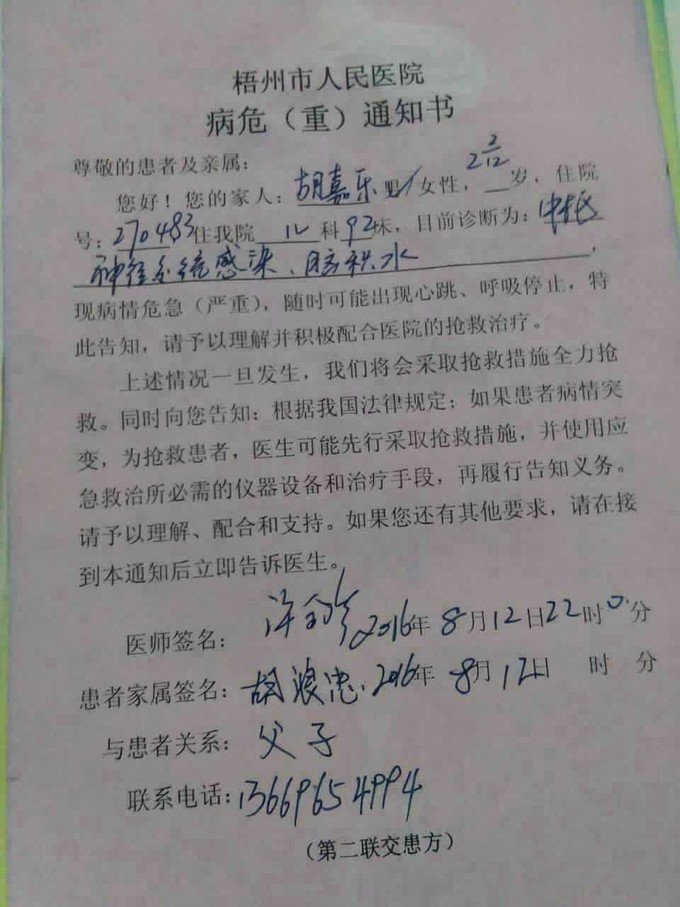 梧州市人民医院
病危（重）通知书
尊敬的患者及亲属：
您好！您的家人：胡嘉乐 男/女性，2 2/12岁，住院
号：270483住我院 12 科92床，目前诊断为：中枢
神经系统感染、脑积水，
现病情危急（严重），随时可能出现心跳、呼吸停止，特
此告知，请予以理解并积极配合医院的抢救治疗。
上述情况一旦发生，我们将会采取抢救措施全力抢
救。同时向您告知：根据我国法律规定；如果患者病情突
变，为抢救患者，医生可能先行采取抢救措施，并使用应
急救治所必需的仪器设备和治疗手段，再履行告知义务。
请予以理解、配合和支持。如果您还有其他要求，请在接
到本通知后立即告诉医生。
医师签名： 2016年 8月12日22时0分
患者家属签名：胡浪忠 2016年 8月12日 时 分
与患者关系：父子
联系电话：13669654994
（第二联交患方）